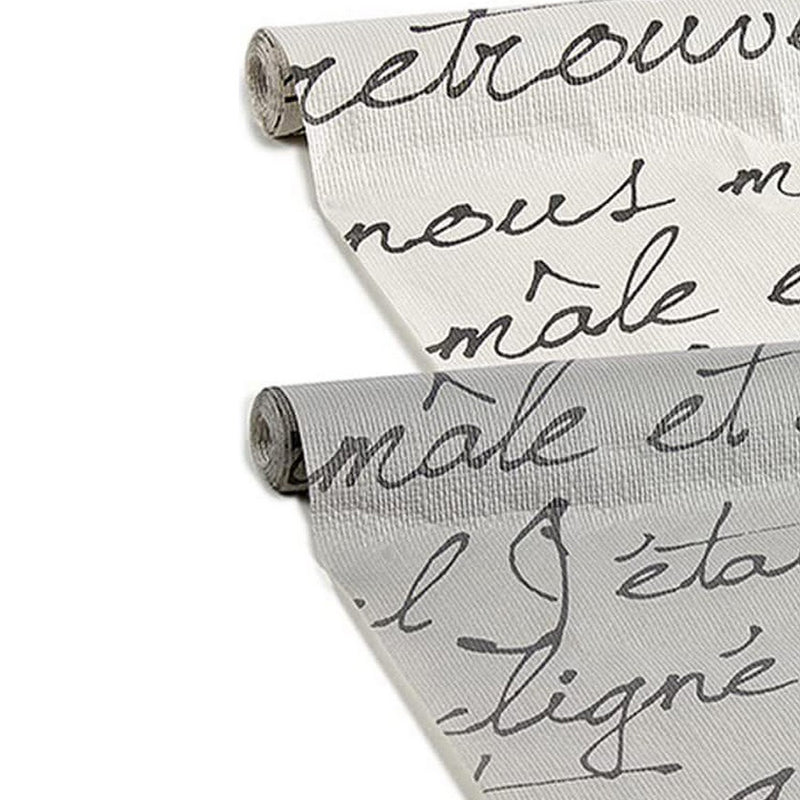 retrouve
nous m
mâle e
mâle et
l J'éta
ligné